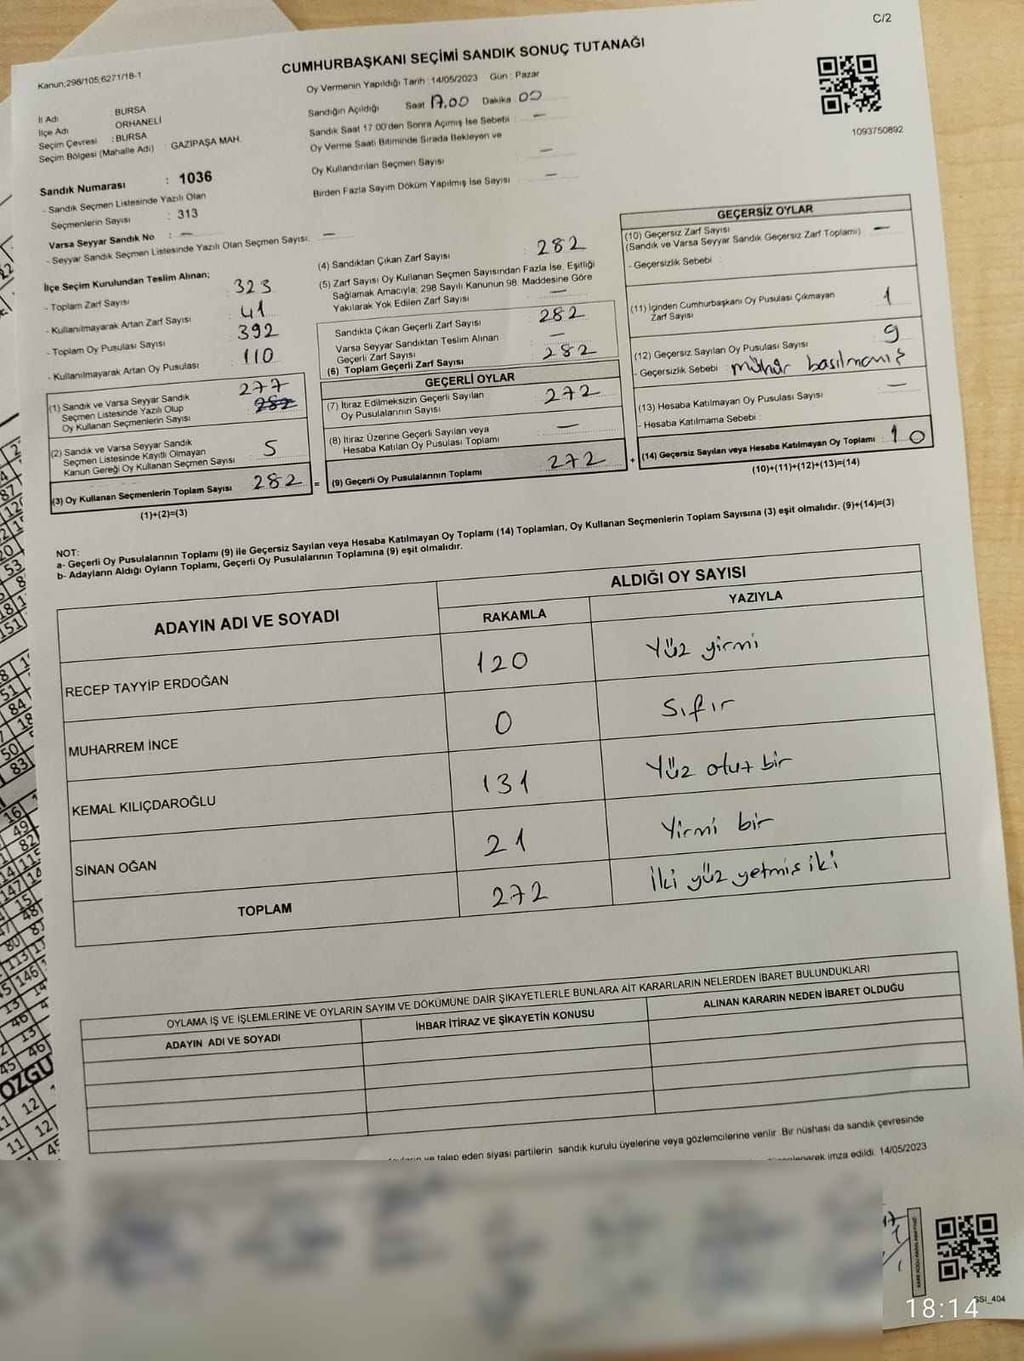 C/2
Kanun;298/105;6271/18-1
CUMHURBAŞKANI SEÇİMİ SANDIK SONUÇ TUTANAĞI
Oy Vermenin Yapıldığı Tarih : 14/05/2023 Gün : Pazar
İl Adı : BURSA
İlçe Adı : ORHANELİ
Seçim Çevresi : BURSA
Seçim Bölgesi (Mahalle Adı) : GAZİPAŞA MAH.
Sandığın Açıldığı Saat 17.00 Dakika 00
Sandık Saat 17:00'den Sonra Açımış İse Sebebi : —
Oy Verme Saati Bitiminde Sırada Bekleyen ve
Oy Kullandırılan Seçmen Sayısı —
Birden Fazla Sayım Döküm Yapılmış İse Sayısı —
1093750892
Sandık Numarası : 1036
- Sandık Seçmen Listesinde Yazılı Olan
Seçmenlerin Sayısı : 313
Varsa Seyyar Sandık No : —
- Seyyar Sandık Seçmen Listesinde Yazılı Olan Seçmen Sayısı: —
İlçe Seçim Kurulundan Teslim Alınan;
- Toplam Zarf Sayısı : 323
- Kullanılmayarak Artan Zarf Sayısı : 41
- Toplam Oy Pusulası Sayısı : 392
- Kullanılmayarak Artan Oy Pusulası : 110
(1) Sandık ve Varsa Seyyar Sandık
Seçmen Listesinde Yazılı Olup
Oy Kullanan Seçmenlerin Sayısı 277 282
(2) Sandık ve Varsa Seyyar Sandık
Seçmen Listesinde Kayıtlı Olmayan
Kanun Gereği Oy Kullanan Seçmen Sayısı 5
(3) Oy Kullanan Seçmenlerin Toplam Sayısı 282 =
(1)+(2)=(3)
(4) Sandıktan Çıkan Zarf Sayısı : 282
(5) Zarf Sayısı Oy Kullanan Seçmen Sayısından Fazla İse, Eşitliği
Sağlamak Amacıyla; 298 Sayılı Kanunun 98. Maddesine Göre
Yakılarak Yok Edilen Zarf Sayısı —
Sandıkta Çıkan Geçerli Zarf Sayısı 282
Varsa Seyyar Sandıktan Teslim Alınan
Geçerli Zarf Sayısı —
(6) Toplam Geçerli Zarf Sayısı : 282
GEÇERLİ OYLAR
(7) İtiraz Edilmeksizin Geçerli Sayılan
Oy Pusulasının Sayısı : 272
(8) İtiraz Üzerine Geçerli Sayılan veya
Hesaba Katılan Oy Pusulası Toplamı : —
(9) Geçerli Oy Pusulalarının Toplamı : 272 +
GEÇERSİZ OYLAR
(10) Geçersiz Zarf Sayısı —
(Sandık ve Varsa Seyyar Sandık Geçersiz Zarf Toplamı)
- Geçersizlik Sebebi :
(11) İçinden Cumhurbaşkanı Oy Pusulası Çıkmayan
Zarf Sayısı 1
(12) Geçersiz Sayılan Oy Pusulası Sayısı : 9
- Geçersizlik Sebebi : mühür basılmamış
(13) Hesaba Katılmayan Oy Pusulası Sayısı : —
- Hesaba Katılmama Sebebi :
(14) Geçersiz Sayılan veya Hesaba Katılmayan Oy Toplamı : 10
(10)+(11)+(12)+(13)=(14)
NOT:
a- Geçerli Oy Pusulalarının Toplamı (9) ile Geçersiz Sayılan veya Hesaba Katılmayan Oy Toplamı (14) Toplamları, Oy Kullanan Seçmenlerin Toplam Sayısına (3) eşit olmalıdır. (9)+(14)=(3)
b- Adayların Aldığı Oyların Toplamı, Geçerli Oy Pusulalarının Toplamına (9) eşit olmalıdır.
ADAYIN ADI VE SOYADI ALDIĞI OY SAYISI
RAKAMLA YAZIYLA
RECEP TAYYİP ERDOĞAN 120 Yüz yirmi
MUHARREM İNCE 0 Sıfır
KEMAL KILIÇDAROĞLU 131 Yüz otuz bir
SİNAN OĞAN 21 Yirmi bir
TOPLAM 272 İki yüz yetmis iki
OYLAMA İŞ VE İŞLEMLERİNE VE OYLARIN SAYIM VE DÖKÜMÜNE DAİR ŞİKAYETLERLE BUNLARA AİT KARARLARIN NELERDEN İBARET BULUNDUKLARI
ADAYIN ADI VE SOYADI İHBAR İTİRAZ VE ŞİKAYETİN KONUSU ALINAN KARARIN NEDEN İBARET OLDUĞU
ve talep eden siyasi partilerin sandık kurulu üyelerine veya gözlemcilerine verilir. Bir nüshası da sandık çevresinde
imza edildi. 14/05/2023
SSI_404
18:14